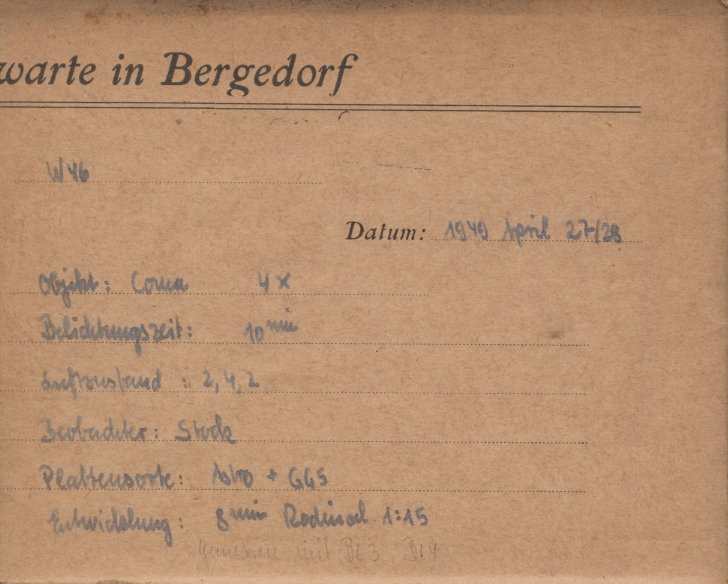 warte in Bergedorf
W 46
Datum: 1949 April 27/28
Objekt: Coma 4 x
Belichtungszeit: 10 min
Luftzustand : 2, 4, 2
Beobachter: Stock
Plattensorte: + GG5
Entwicklung: 8 min Rodinal 1:15
mit